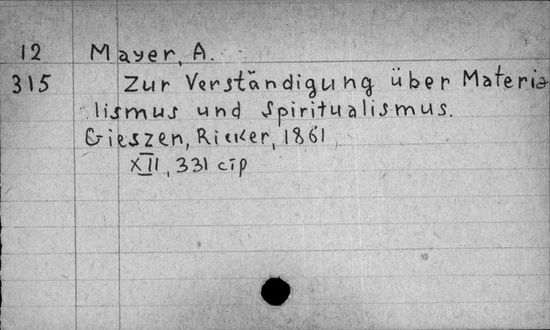 12 Mayer, A.
315 Zur Verständigung über Materia
lismus und Spiritualismus.
Gieszen, Ricker, 1861
XII, 331 cтр